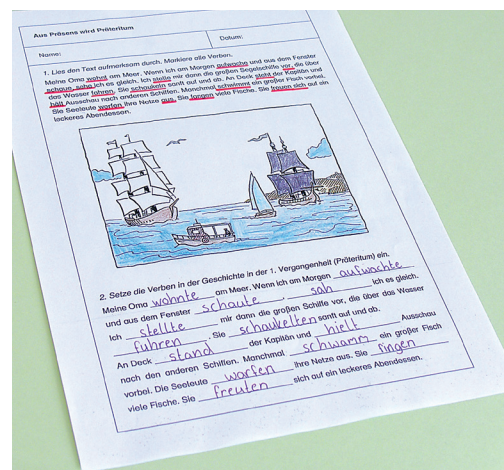 Aus Präsens wird Präteritum
Name:
Datum:
1. Lies den Text aufmerksam durch. Markiere alle Verben.
Meine Oma wohnt am Meer. Wenn ich am Morgen aufwache und aus dem Fenster
schaue, sehe ich es gleich. Ich stelle mir dann die großen Segelschiffe vor, die über
das Wasser fahren. Sie schaukeln sanft auf und ab. An Deck steht der Kapitän und
hält Ausschau nach anderen Schiffen. Manchmal schwimmt ein großer Fisch vorbei.
Die Seeleute werfen ihre Netze aus. Sie fangen viele Fische. Sie freuen sich auf ein
leckeres Abendessen.
2. Setze die Verben in der Geschichte in der 1. Vergangenheit (Präteritum) ein.
Meine Oma wohnte am Meer. Wenn ich am Morgen aufwachte
und aus dem Fenster schaute, sah ich es gleich.
Ich stellte mir dann die großen Schiffe vor, die über das Wasser
fuhren. Sie schaukelten sanft auf und ab.
An Deck stand der Kapitän und hielt Ausschau
nach den anderen Schiffen. Manchmal schwamm ein großer Fisch
vorbei. Die Seeleute warfen ihre Netze aus. Sie fingen
viele Fische. Sie freuten sich auf ein leckeres Abendessen.